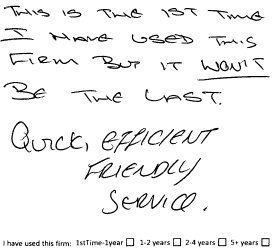 THIS IS THE 1ST TIME
I HAVE USED THIS
FIRM BUT IT WON'T
BE THE LAST.
QUICK, EFFICIENT
FRIENDLY
SERVICE.
I have used this firm: 1stTime-1year ☐ 1-2 years ☐ 2-4 years ☐ 5+ years ☐